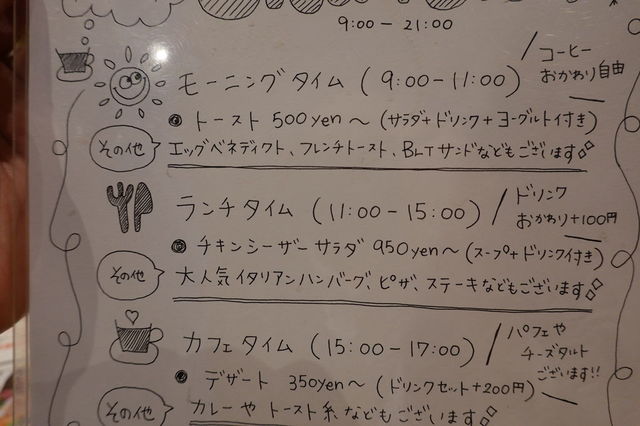 9:00 - 21:00
モーニングタイム (9:00-11:00)
コーヒー
おかわり自由
トースト 500yen〜 (サラダ+ドリンク+ヨーグルト付き)
その他
エッグベネディクト、フレンチトースト、BLTサンドなどもございます
ランチタイム (11:00-15:00)
ドリンク
おかわり+100円
チキンシーザーサラダ 950yen〜 (スープ+ドリンク付き)
その他
大人気イタリアンハンバーグ、ピザ、ステーキなどもございます
カフェタイム (15:00-17:00)
パフェや
チーズタルト
ございます!!
デザート 350yen〜 (ドリンクセット+200円)
その他
カレーやトースト系などもございます